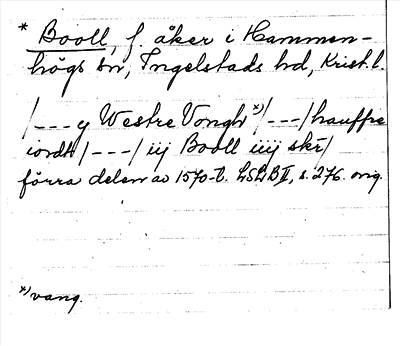 * Booll, f. åker i Hammen-
högs sn, Ingelstads hd, Krist. l.
/--- y Westre Vongh *) /---/ hauffre
iordh /---/ iij Booll iiij skr/
förra delen av 1570-t. LSLBII, s. 276. orig.
*) vang.